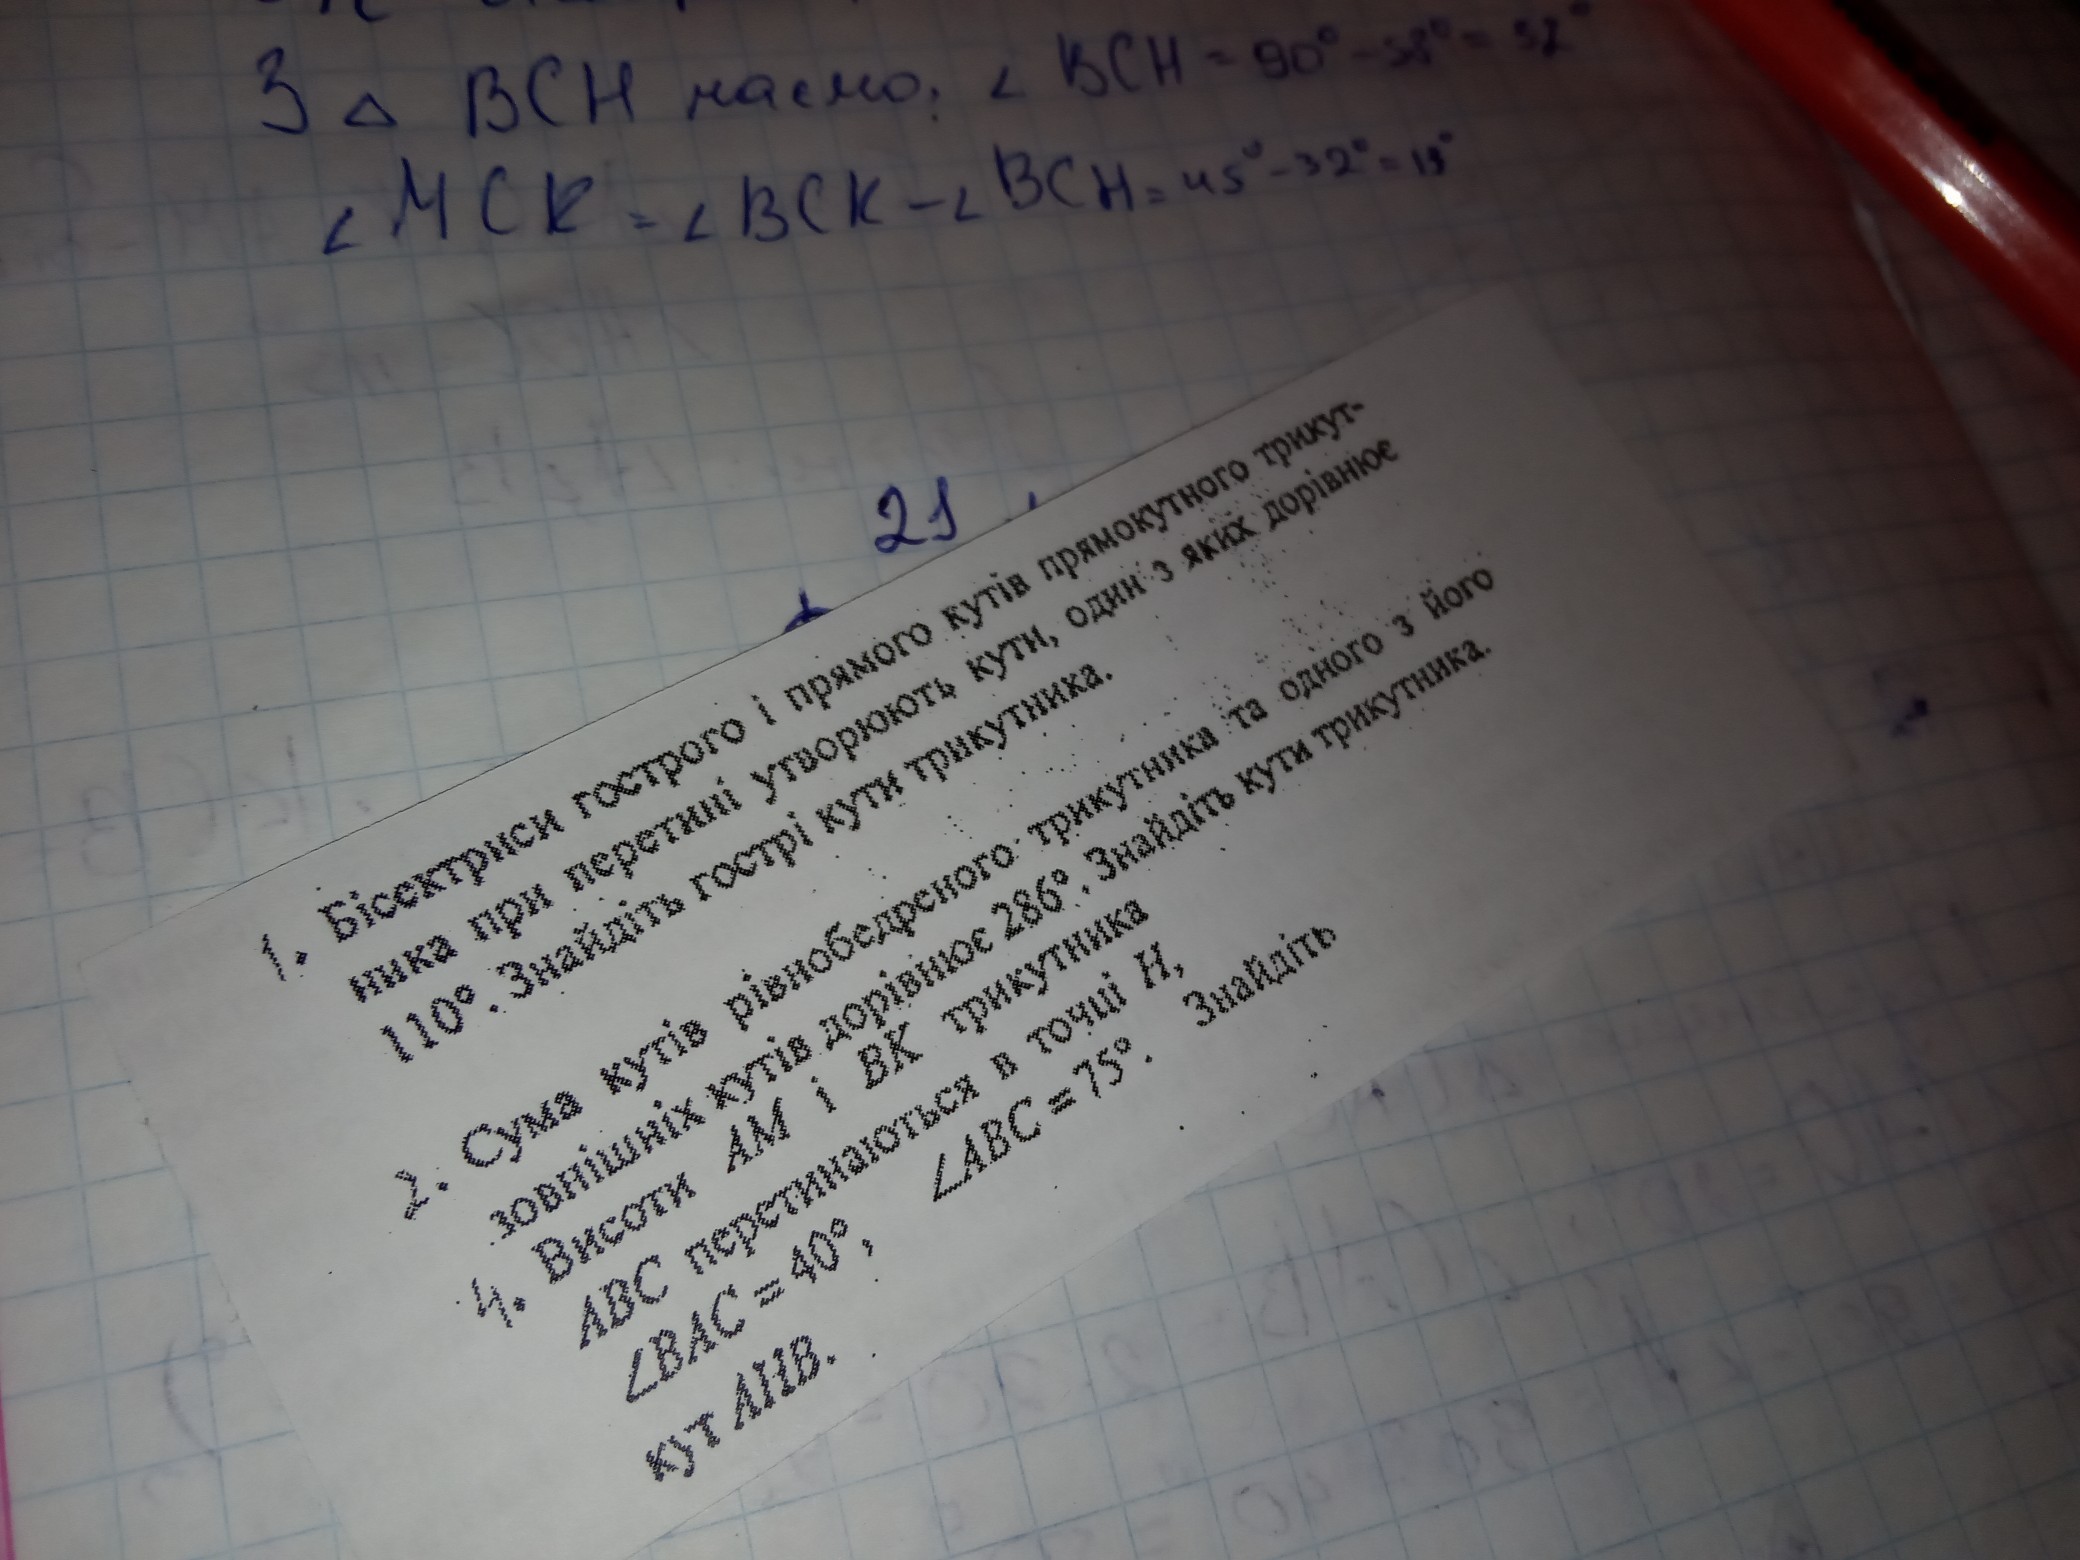 З △ BCH маємо: ∠ BCH = 90° - 58° = 32°
∠ HCK = ∠ BCK - ∠ BCH = 45° - 32° = 13°
21
1. Бісектриси гострого і прямого кутів прямокутного трикут-
ника при перетині утворюють кути, один з яких дорівнює
110°. Знайдіть гострі кути трикутника.
2. Сума кутів рівнобедреного трикутника та одного з його
зовнішніх кутів дорівнює 286°. Знайдіть кути трикутника.
4. Висоти AM і BK трикутника
ABC перетинаються в точці H,
∠BAC = 40°, ∠ABC = 75°. Знайдіть
кут AHB.